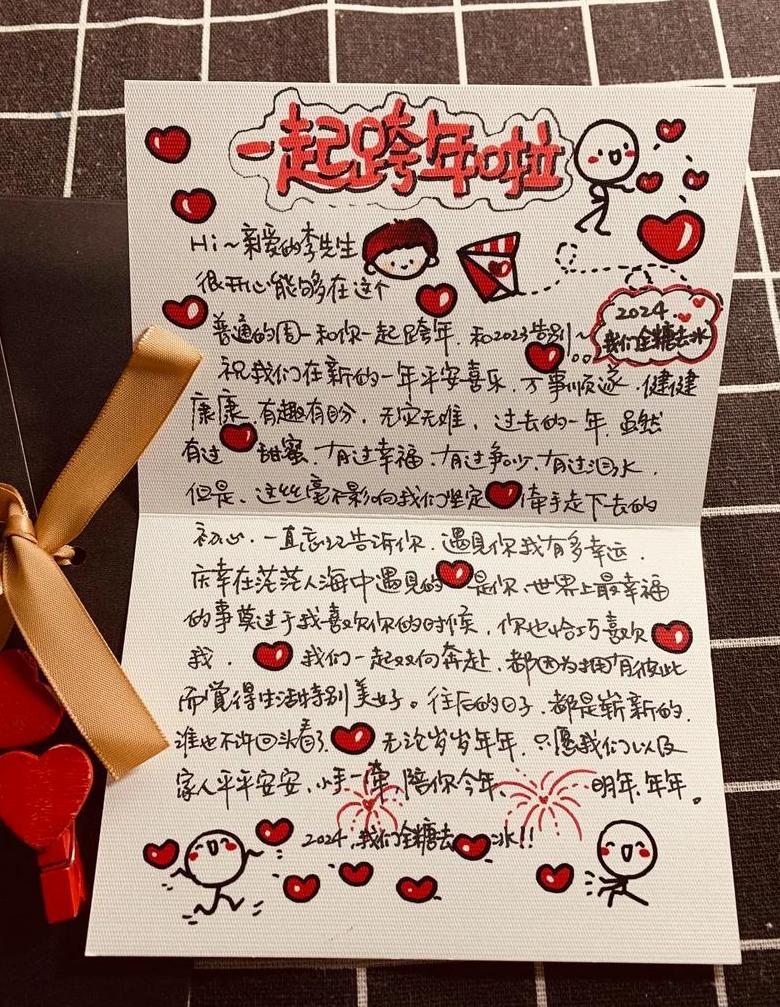 一起跨年啦
Hi~亲爱的李先生
很开心能够在这个
2024.
我们全糖去冰
普通的周一和你一起跨年.和2023告别~
祝我们在新的一年平安喜乐.万事顺遂.健健
康康.有趣有盼，无灾无难，过去的一年.虽然
有过甜蜜.有过幸福.有过争吵.有过泪水.
但是、这些毫不影响我们坚定牵手走下去的
初心.一直忘记告诉你.遇见你我有多幸运.
庆幸在茫茫人海中遇见的是你、世界上最幸福
的事莫过于我喜欢你的时候，你也恰巧喜欢
我.我们一起双向奔赴、都因为拥有彼此
而觉得生活特别美好。往后的日子.都是崭新的.
谁也不许回头看了无论岁岁年年.只愿我们以及
家人平平安安，小手一牵 陪你今年、明年.年年。
2024，我们全糖去冰!!